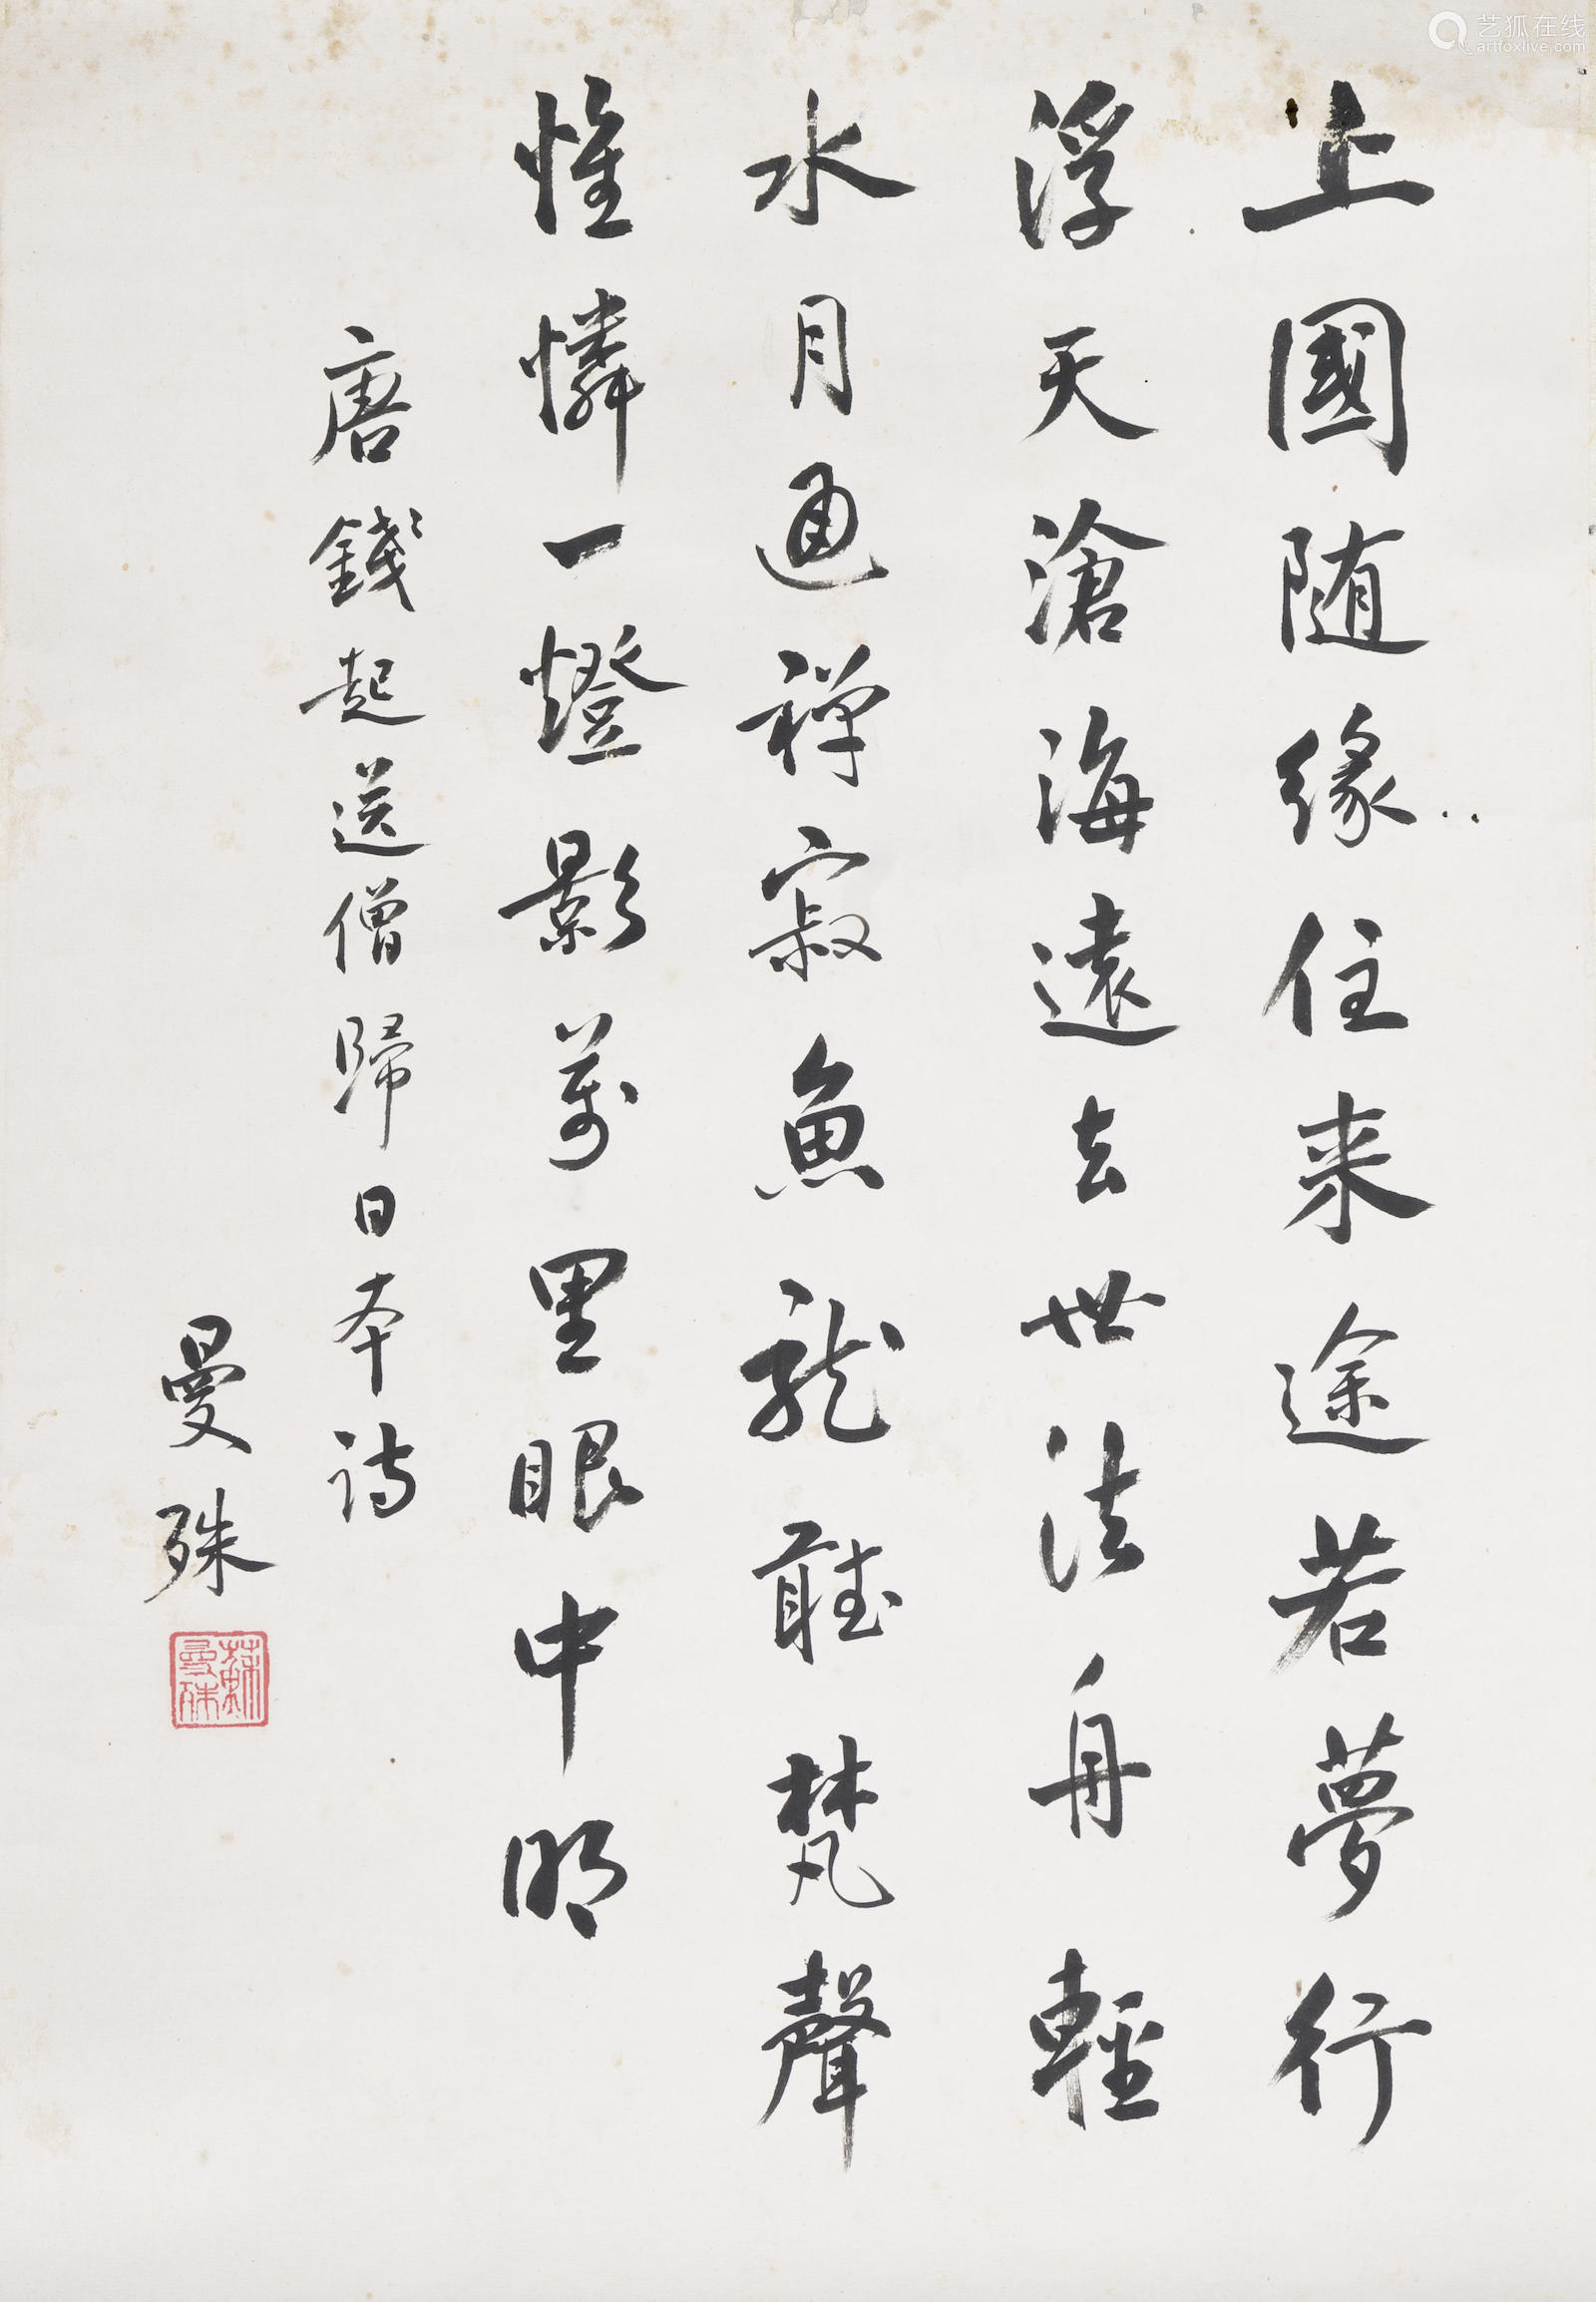 上國随缘住来途若夢行
浮天滄海遠去世法舟輕
水月通禅寂魚龍聽梵聲
惟憐一燈影萬里眼中明
唐錢起送僧歸日本詩
曼殊
蘇曼殊
艺狐在线
artfoxlive.com